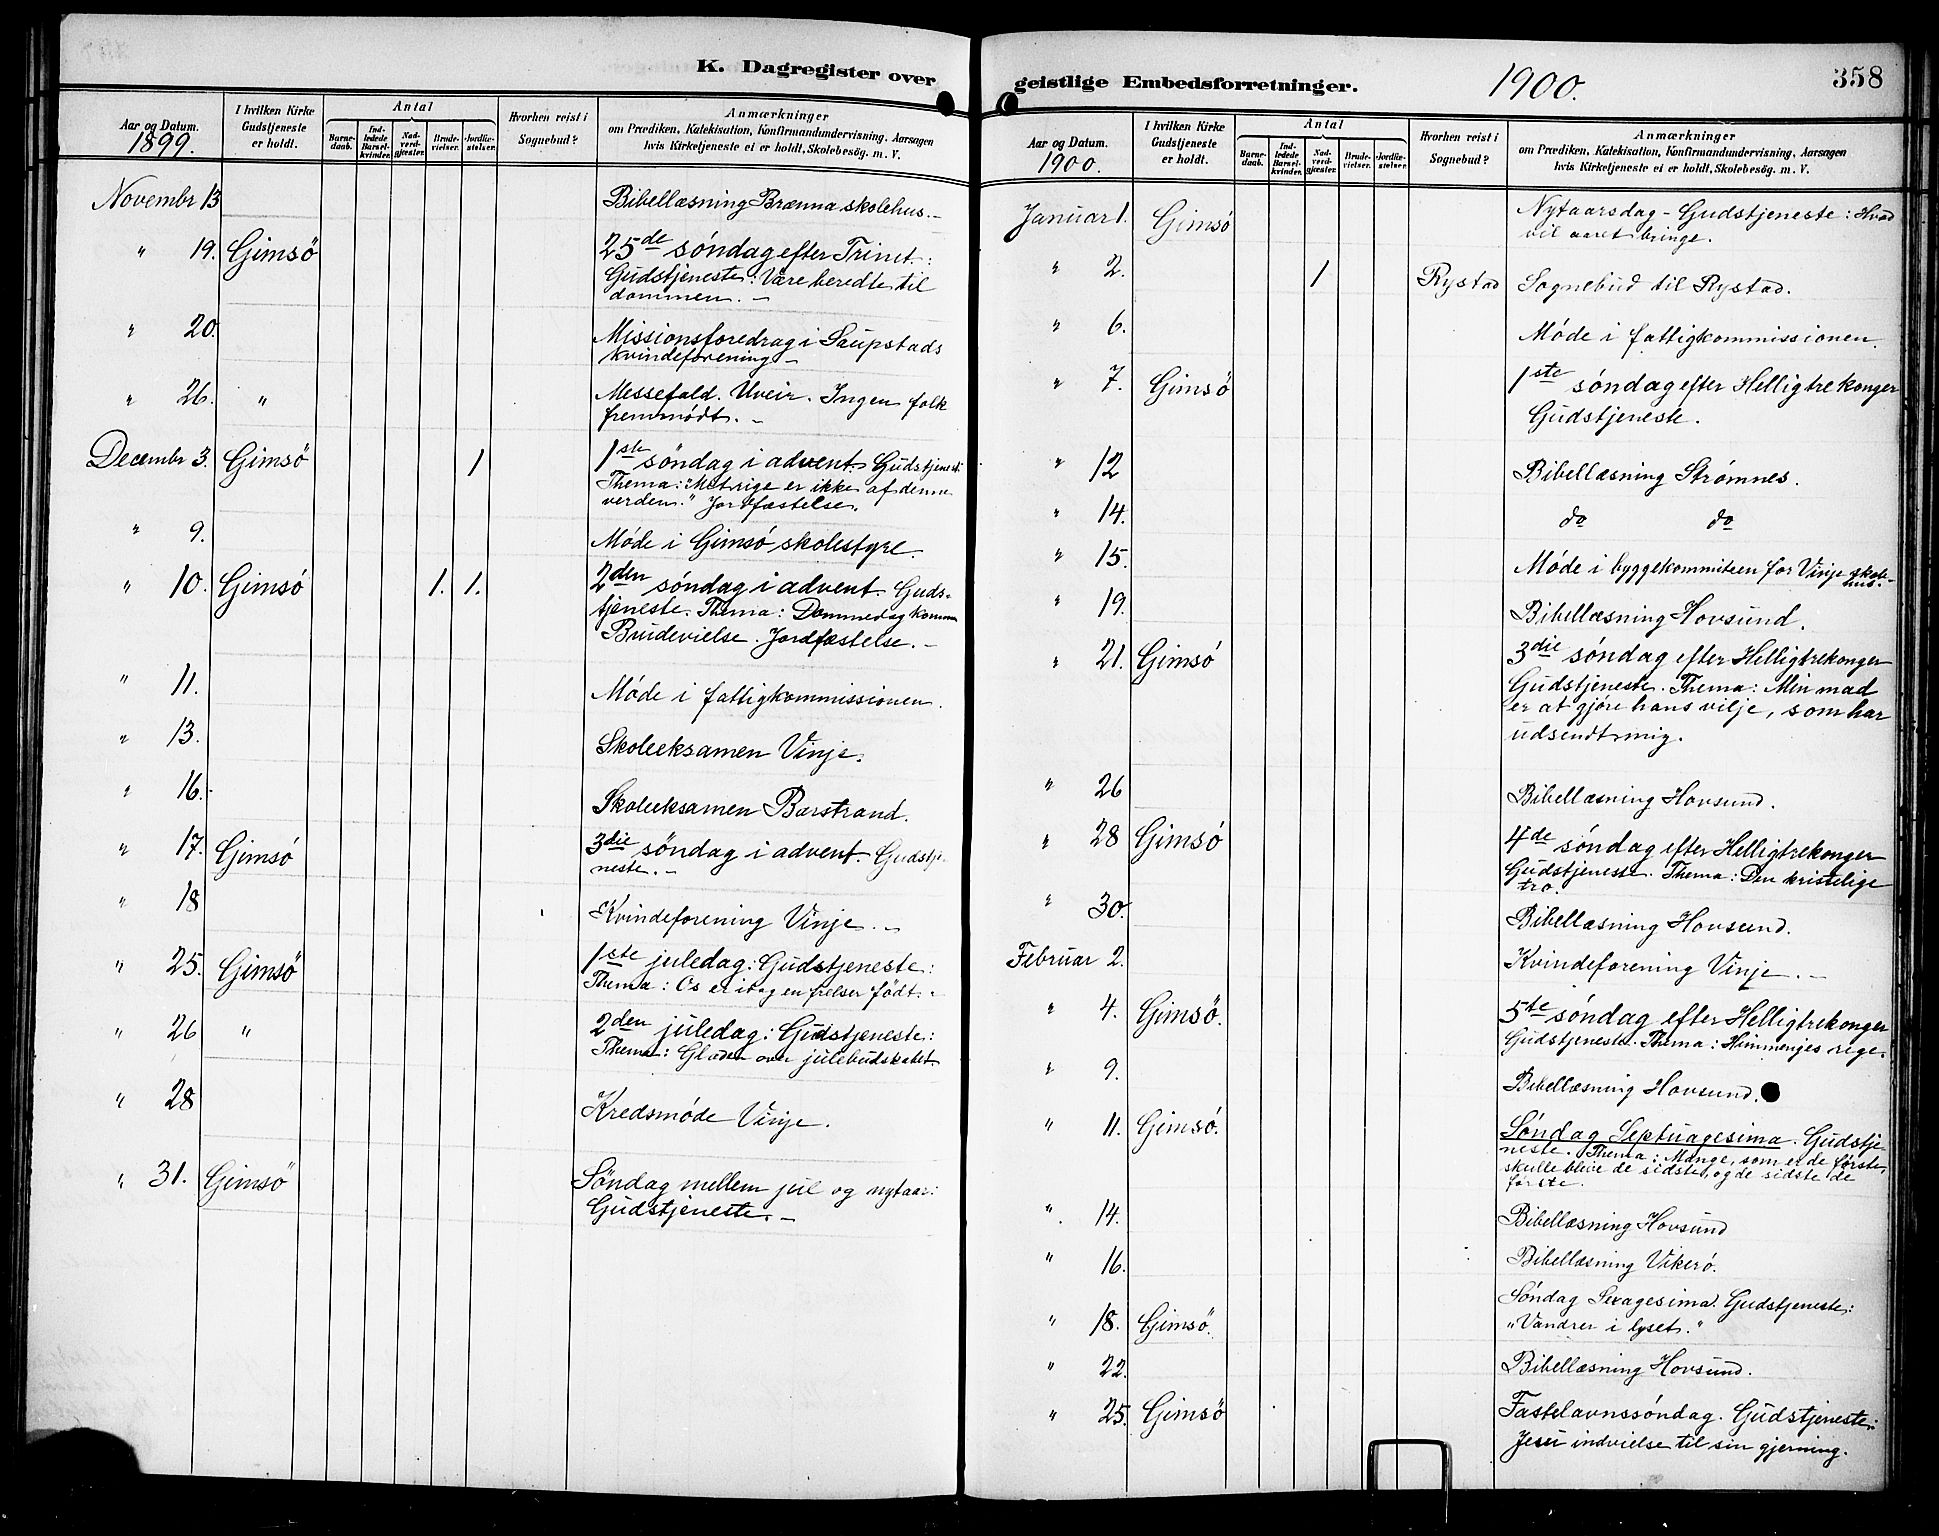 K. Dagregister over
Aar og Datum.
1899.
I hvilken Kirke
Gudstjeneste
er holdt.
Antal
Barne-
daab.
Ind-
ledede
Barsel-
kvinder.
Nad-
verd-
gjæster.
Brude-
vielser.
Jordfæ-
stelser.
Hvorhen reist i
Sognebud?
Anmærkninger
om Prædiken, Katekisation, Konfirmandundervisning, Aarsagen
hvis Kirketjeneste ei er holdt, Skolebesög. m. V.
Novembr 13 Bibellæsning Brenna skolehus. –
" 19. Gimsö 25de söndag efter Trinit.:
Gudstjeneste: Være beredte til
dommen. –
" 20. Missionsforedrag i Saupstads
kvindeforening –
" 26. " Messefald. Uveir. Ingen folk
fremmødt. –
Decembr 3. Gimsö 1 1ste söndag i advent. Gudstjenest:
Thema: "Mit rige er ikke af denne
verden." Jordfæstelse.
" 9. Møde i Gimsó skolestyre.
" 10. Gimsö 1. 1. 2den söndag i advent. Guds-
tjeneste. Thema: Dommedag komm
Brudevielse. Jordfæstelse. –
" 11. Møde i fattigkommissionen.
" 13. Skoleeksamen Vinje.
" 16. Skoleeksamen Barstrand.
" 17. Gimsó 3die söndag i advent. Gudstje-
neste. –
" 18 Kvindeforening Vinje. –
" 25. Gimsö 1ste juledag: Gudstjeneste:
Thema: Os er idag en frelser født. –
" 26 " 2den juledag: Gudstjeneste:
Thema: Glæden over julebudskabet.
" 28 Kredsmøde Vinje.
" 31. Gimsö Söndag mellem jul og nytaar:
Gudstjeneste. –
geistlige Embedsforretninger.
1900.
358
Aar og Datum.
1900.
I hvilken Kirke
Gudstjeneste
er holdt.
Antal
Barne-
daab.
Ind-
ledede
Barsel-
kvinder.
Nad-
verd-
gjæster.
Brude-
vielser.
Jordfæ-
stelser.
Hvorhen reist i
Sognebud?
Anmærkninger
om Prædiken, Katekisation, Konfirmandundervisning, Aarsagen
hvis Kirketjeneste ei er holdt, Skolebesög. m. V.
Januar 1. Gimsö Nytaarsdag – Gudstjeneste: Hvad
vil aaret bringe.
" 2. 1 Rystad Sognebud til Rystad.
" 6. Møde i fattigkommissionen.
" 7. Gimsö 1ste søndag efter Helligtrekonger
Gudstjeneste.
" 12 Bibellæsning Strømnes.
" 14. do do
" 15. Møde i byggekommiteen for Vinje skole-
hus.
" 19. Bibellæsning Hovsund.
" 21. Gimsó 3die søndag efter Helligtrekonger
Gudstjeneste. Thema: Min mad
er at gjøre hans vilje, som har
udsendt mig.
" 26 Bibellæsning Hovsund.
" 28 Gimsó 4de søndag efter Helligtrekonger
Gudstjeneste. Thema: Den kristelige
tro.
" 30. Bibellæsning Hovsund.
Februar 2. Kvindeforening Vinje. –
" 4. Gimsö. 5te søndag efter Helligtrekonger
Gudstjeneste. Thema: Himmeriges rige.
" 9. Bibellæsning Hovsund.
" 11. Gimsó. Søndag Septuagesima. Gudstje-
neste. Thema: Mange, som er de første,
skulle blive de sidste, og de sidste de
første.
" 14. Bibellæsning Hovsund
" 16. Bibellæsning Vikerø.
" 18. Gimsö. Søndag Sexagesima. Gudstjeneste:
"Vandrer i lyset."
" 22. Bibellæsning Hovsund.
" 25. Gimsö Fastelavnssøndag. Gudstjeneste:
Jesu indvielse til sin gjerning.